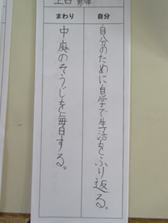 自分
自分のために自学で生活をふり返る。
まわり
中庭のそうじを毎日する。